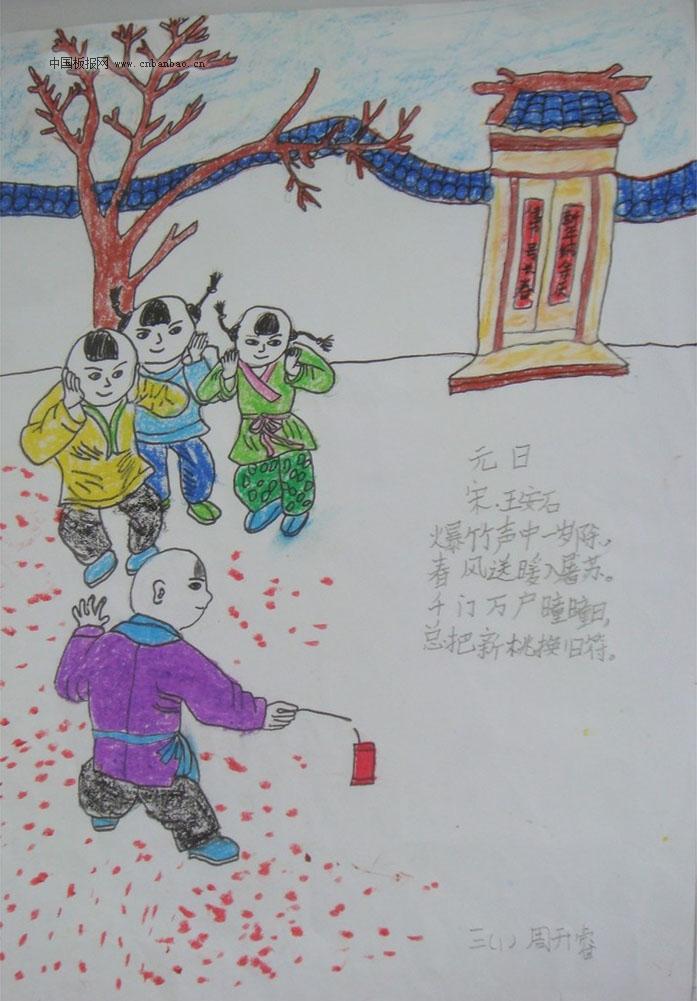 中国板报网 www.cnbanbao.cn
新年纳余庆
佳节号长春
元日
宋.王安石
爆竹声中一岁除,
春风送暖入屠苏。
千门万户曈曈日,
总把新桃换旧符。
三(1) 周开睿